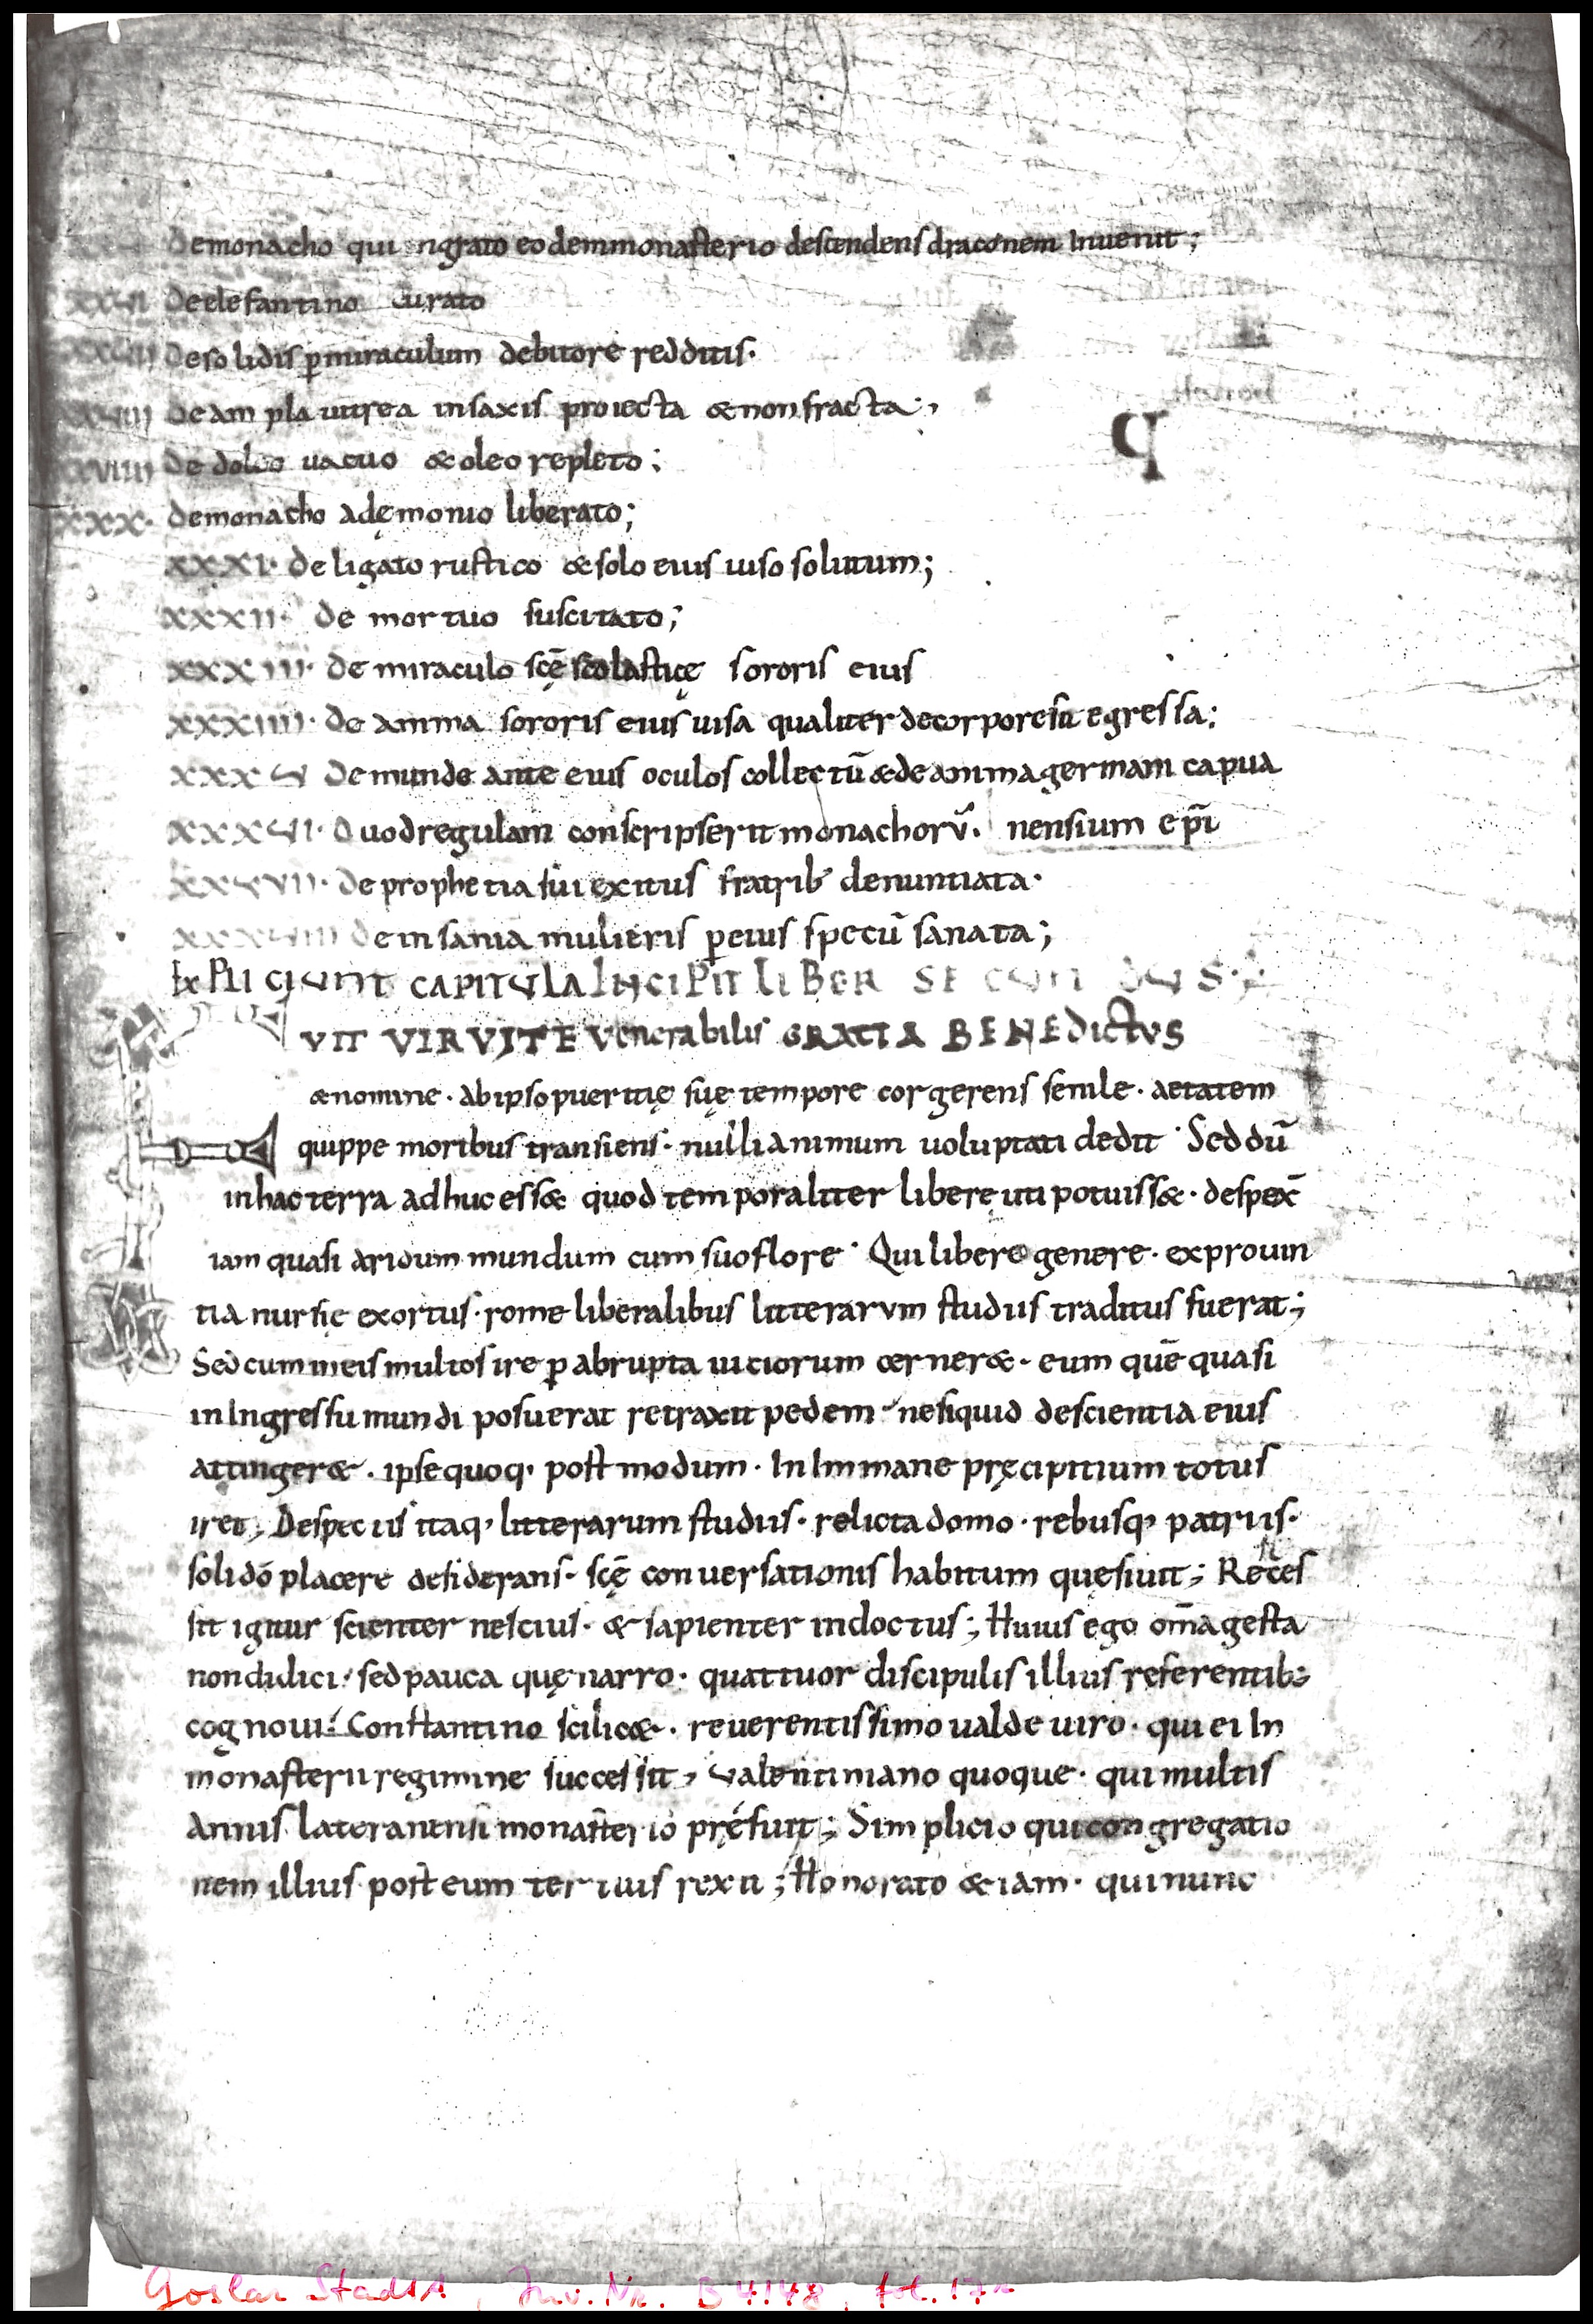 demonacho qui ingrato eodemmonasterio descendens draconem Invenit;
XXVII Deelefantino curato
XXVIII Desolidis ꝑmiraculum debitore redditis.
XXVIIII Deampla uitrea insaxis proiecta &nonfracta;,
XXVIIII De doleo uacuo &oleo repleto;
XXX. Demonacho adęmonio liberato;
XXXI. De ligato rustico &solo eius uiso solutum;
XXXII. De mortuo suscitato;
XXXIII. De miraculo scę̄ scolasticę sororis eius
XXXIIII. De anima sororis eius uisa qualiter decorporesit egressa;
XXXV Demundo ante eius oculos collectū &deanimagermani capua
XXXVI. Quodregulam conscripserit monachorū. nensium ep̄i
XXXVII. De prophetia sui exitus fratrib; denuntiata.
XXXVIII De insania mulieris ꝑeius specū sanata;
EXPLICIUNT CAPITULA INCIPIT LIBER SECUNDUS
VIT VIR VITE Venerabilis GRATIA BENEdictVS
&nomine. abipsopueritię suę tempore corgerens senile. aetatem
quippe moribus transiens. nullianimum uoluptati dedit. Sed dū
inhacterra adhuc ess& quod temporaliter liberę uti potuiss&. despex̄
iam quasi aridum mundum cum suoflore. Qui libere genere. exprouin
tia nursię exortus. rome liberalibus litterarvm studiis traditus fuerat;
Sedcumineis multos ire ꝑ abrupta uiciorum cerner&. eum quē quasi
inIngressu mundi posuerat retraxit pedem. nesiquid descientia eius
attinger&. ipse quoq; postmodum. In Inmane pręcipitium totus
iret; Despectis itaq; litterarum studiis. relicta domo. rebusq; patriis.
solidō placere desiderans. scę̄ conuersationis habitum quęsiuit; Reces
sit igitur scienter nescius. & sapienter indoctus; Huius ego om̄a gesta
nondidici. sedpauca quę narro. quattuor discipulis illius referentib;
cognoui. Constantino scilic&. reuerentissimo ualde uiro. qui ei In
monasterii regimine successit, Valentiniano quoque. qui multis
Annis lateranensi monasterio pręfuit; Simplicio qui congregatio
nem illius post eum tertius rexit; Honorato &iam. qui nunc
q
Goslar StadtA, Inv. Nr. B 4148, fol. 17r